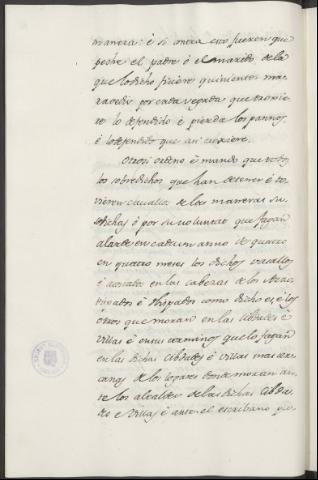 manera: é si oviera esto fueren que
peche el padre ó el marido de la
que lo dicho ficiere quinientos ma-
ravedis por cada vegada que troxie-
re lo defendido é pierda los paños
é lo defendido que asi troxiere.
Otrosi ordeno é mando que todos
los sobredichos que han de tener é to-
vieren cavallos de las maneras su-
sodichas ó por su voluntat que fagan
alarde en cada un anno de quatro
en quatro meses los dichos vasallos
é
en las cabezas de los Arzo-
bispados é Obispados como dicho es é los
otros que moran en las Cibdades é
villas é en sus terminos que lo fagan
en las dichas Cibdades é villas mas cer-
canas de los logares donde moran an-
te los alcalles de las dichas Cibda-
des e Villas é ante el escribano pu-